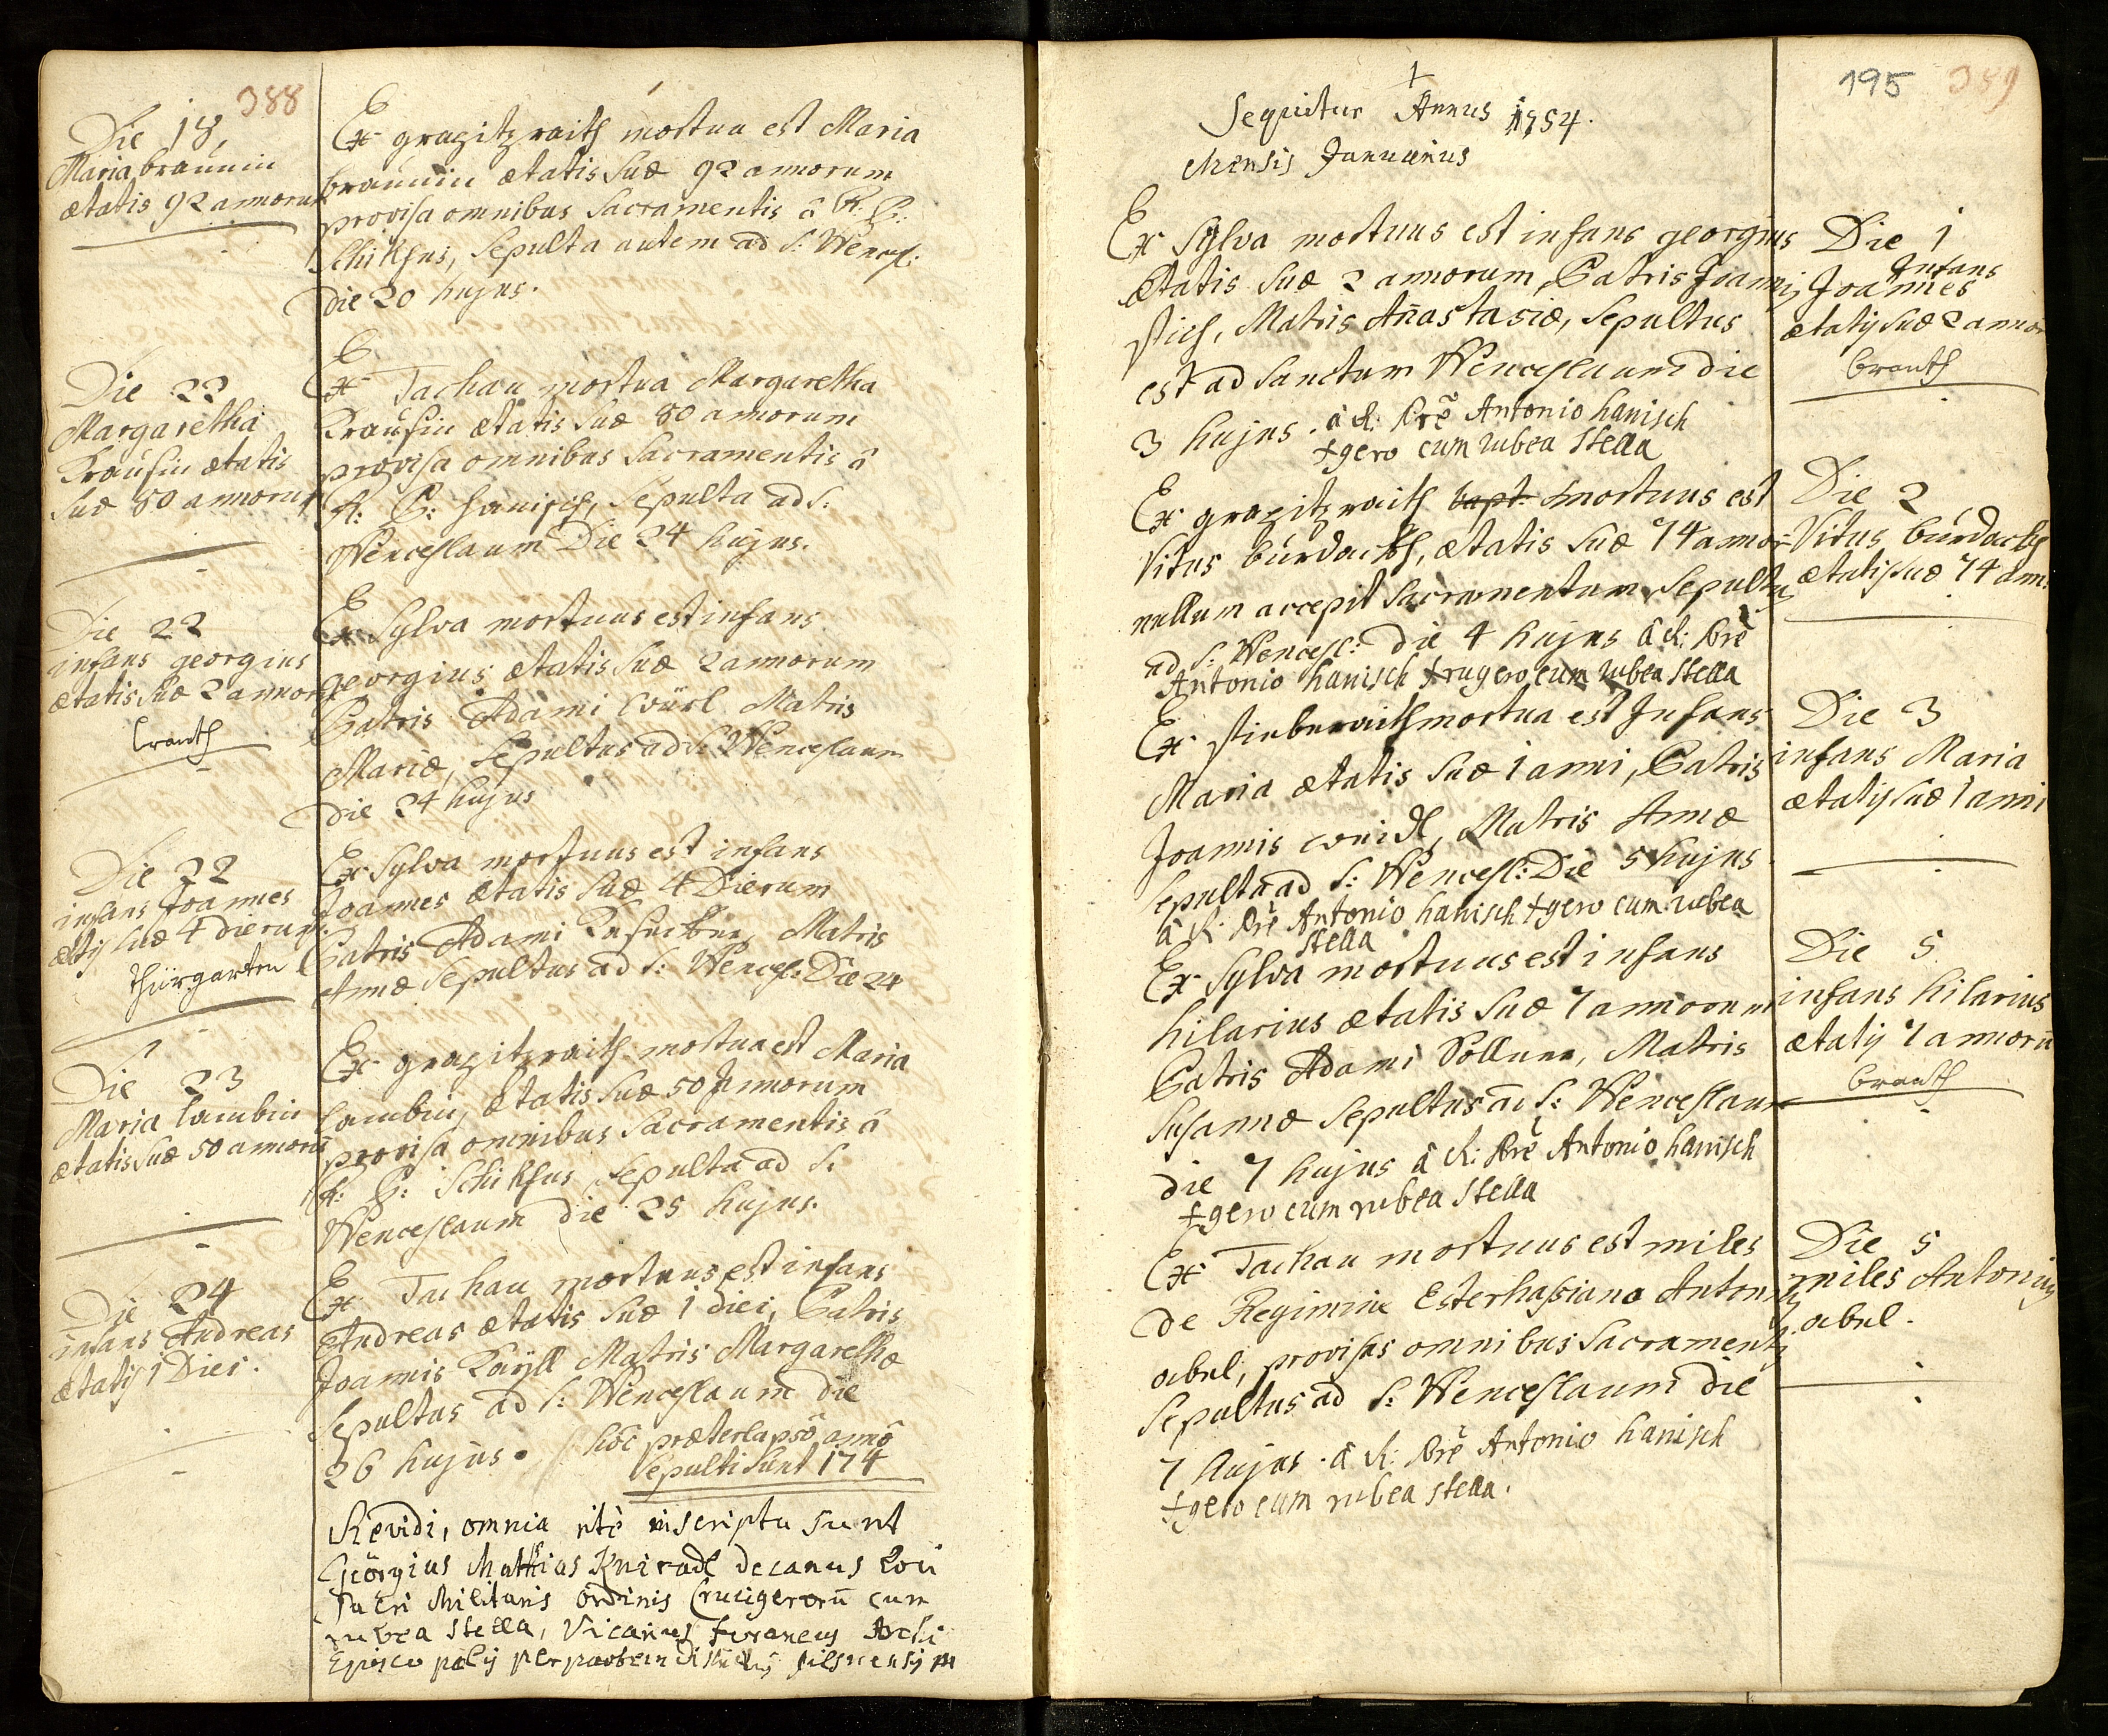 388
Die 18,
Maria braunin
ætatis 92 annorum
Ex grazitzraith mortua est Maria
braunin ætatis suæ 92 annorum
provisa omnibus Sacramentis â R. P.
Schikhus, Sepulta autem ad S: Wencesl:
die 20 hujus.
Die 22
Margaretha
Krausin ætatis
suæ 80 annorum
Ex Tachau mortua Margaretha
Krausin ætatis suæ 80 annorum
provisa omnibus Sacramentis â
R: P: Hanisch, Sepulta ad S:
Wenceslaum Die 24 hujus.
Die 22
infans georgius
ætatis suæ 2 annorum
branth
Ex Sylva mortuus est infans
georgius ætatis suæ 2 annorum
Patris Adami Würl Matris
Mariæ, Sepultus ad S: Wenceslaum
die 24 hujus
Die 22
infans Joannes
ætatis suæ 4 dierum
thürgarten
Ex Sylva mortuus est infans
Joannes ætatis suæ 4 Dierum
Patris Adami Matris
Annæ Sepultus ad S: Wencesl: Die 24
Die 23
Maria Lambin
ætatis suæ 50 annorū
Ex grazitzraith mortua est Maria
Lambin, ætatis suæ 50 Annorum
provisa omnibus Sacramentis â
R: P: Schikhus Sepulta ad S:
Wenceslaum die 25 hujus.
Die 24
infans Andreas
ætatis 1 Diei.
Ex Tachau mortuus est infans
Andreas ætatis suæ 1 diei, Patris
Joannis Kayll Matris Margarethæ
Sepultus ad S: Wenceslaum die
26 hujus. hôc præterlapsô annô
Sepulti sunt 174
Revidi, omnia ritè inscripta sunt
Geörgius Mathias Kniradl decanus Loci
Sacri Militaris Ordinis Crucigerorū cum
rubea Stella, Vicarius foraneus Archi
Episcopalis per partem districtus pilsnensis
195 389
Sequitur Annus 1754.
Mensis Januarius
Ex Sylva mortuus est infans georgius
Ætatis suæ 2 annorum, Patris Joannis
stich, Matris Añastasiæ, Sepultus
est ad Sanctum Wenceslaum die
3 hujus. â R: Prē Antonio hanisch
✝gero cum rubea Stella
Die 1
Infans
Joannes
ætatis suæ 2 annor
branth
Ex grazitzraith bapt: mortuus est
Vitus burdach, ætatis suæ 74 annor
nullum accepit Sacramentum, Sepultus
ad S: Wencesl: die 4 hujus â R: Prē
Antonio hanisch ✝rugero cum rubea Stella
Die 2
Vitus burdach
ætatis suæ 74 ann:
Ex stieberaith mortua est Infans
Maria ætatis suæ 1 anni, Patris
Joannis Weidl, Matris Annæ
Sepulta ad S: Wencesl: Die 5 hujus
â R: Prē Antonio hanisch ✝gero cum rubea
Stella
Die 3
infans Maria
ætatis suæ 1 anni
Ex Sylva mortuus est infans
hilarius ætatis suæ 7 annorum
Patris Adami Sollner, Matris
Susannæ Sepultus ad S: Wenceslaum
die 7 hujus â R: Prē Antonio hanisch
✝gero cum rubea Stella
Die 5
infans hilarius
ætatis 7 annorū
branth
Ex Tachau mortuus est miles
de Regimine Esterhasiano Antonius
abel, provisus omnibus Sacramentis
Sepultus ad S: Wenceslaum die
7 hujus. â R: Prē Antonio hanisch
✝gero cum rubea Stella.
Die 5
miles Antonius
abel.